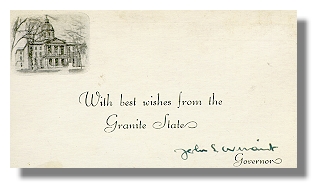 With best wishes from the
Granite State
John G Winant
Governor